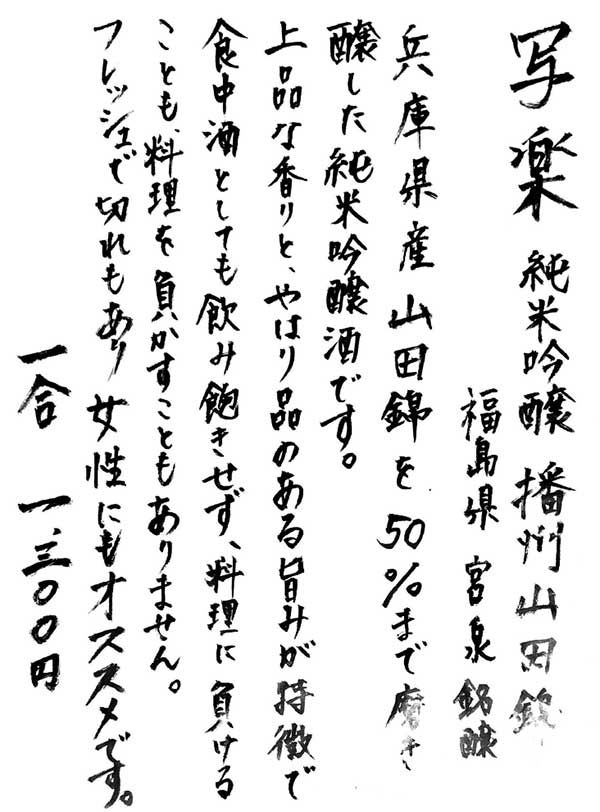 写楽 純米吟醸 播州山田錦
福島県 宮泉銘醸
兵庫県産山田錦を50%まで磨き
醸した純米吟醸酒です。
上品な香りと、やはり品のある旨みが特徴で
食中酒としても飲み飽きせず、料理に負ける
ことも、料理を負かすこともありません。
フレッシュで切れもあり女性にもオススメです。
一合 一、三〇〇円